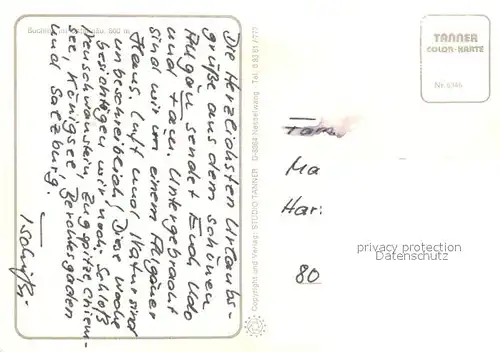 Die Herzlichsten Urlaubs-
grüße aus dem schönen
Allgäu sendet Euch Udo
und Fam. Untergebracht
sind wir in einem Allgäuer
Haus. Luft und Natur sind
unbeschreiblich! Diese Woche
besichtigen wir noch: Schloß
Neuschwanstein, Zugspitze, Chiem-
see, Königsee, Berchtesgaden
und Salzburg.
Tschüß.
Copyright und Verlag: STUDIO TANNER D-8964 Nesselwang Tel. 08361/777
TANNER
COLOR-KARTE
Nr.
Fam.
Ma
Har
80
privacy protection
Datenschutz